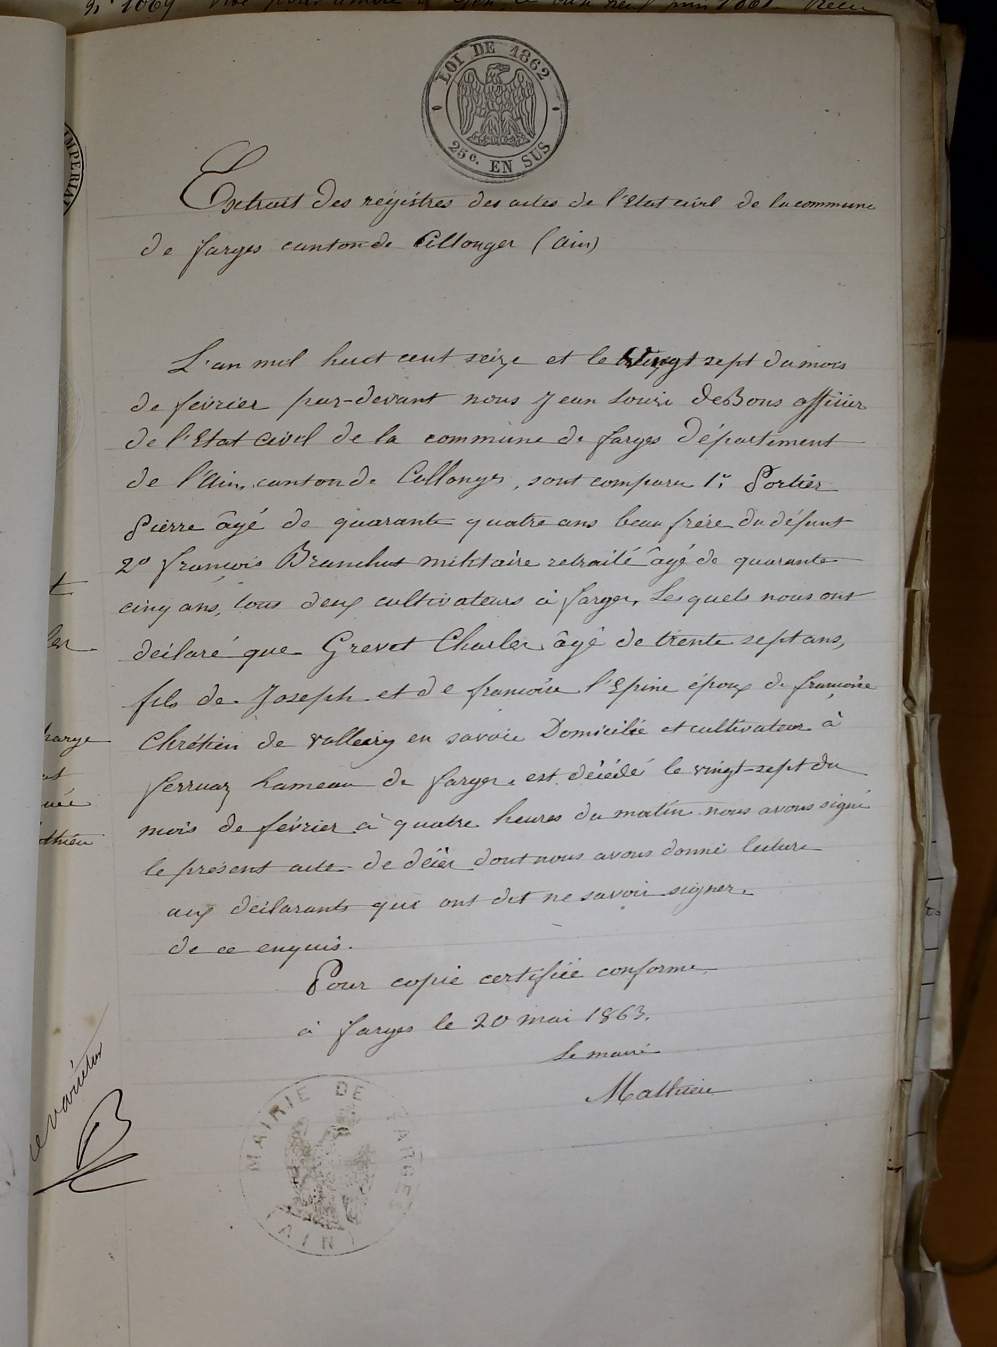 LOI DE 1862
25c. EN SUS
Extrait des régistres des actes de l'Etat civil de la commune
de farges canton de Collonges (ain)
L'an mil huit cent seize et le vingt sept du mois
de fevrier par-devant nous Jean Louis DeBons officier
de l'Etat civil de la commune de farges Département
de l'Ain canton de Collonges, sont comparu 1° Portier
Pierre âgé de quarante quatre ans beau frère du défunt
2° françois Branchut militaire retraité âgé de quarante
cinq ans, tous deux cultivateurs à farges, Lesquels nous ont
déclaré que Grevet Charles âgé de trente sept ans,
fils de Joseph et de françoise l'Epine époux de françoise
Chrétien de Valleiry en savoie Domicilié et cultivateur à
ferruaz hameau de farges, est décédé le vingt-sept du
mois de février à quatre heures du matin nous avons signé
le présent acte de décès dont nous avons donné lecture
aux déclarants qui ont dit ne savoir signer
de ce enquis.
Pour copie certifiée conforme
à farges le 20 mai 1863.
Le maire
Mathieu
MAIRIE DE FARGES
(AIN)